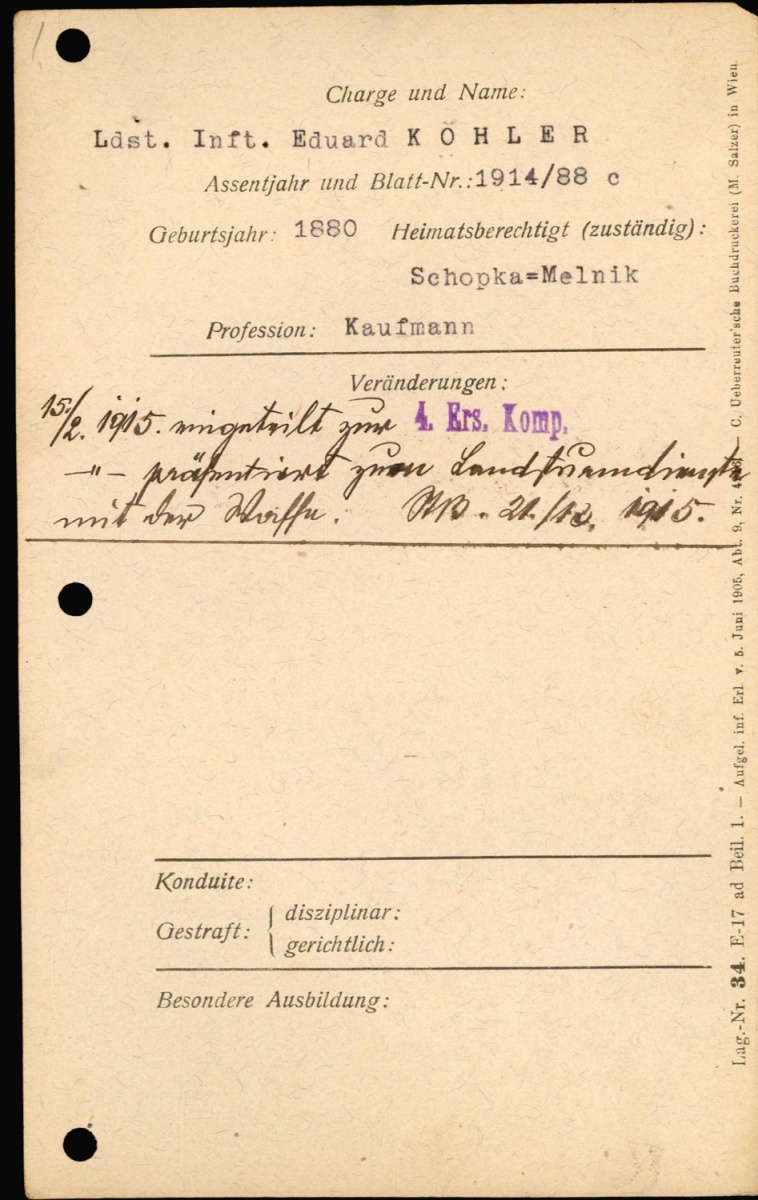 Charge und Name:
Ldst. Inft. Eduard KÖHLER
Assentjahr und Blatt-Nr.: 1914/88 c
Geburtsjahr: 1880 Heimatsberechtigt (zuständig):
Schopka=Melnik
Profession: Kaufmann
Veränderungen:
15./2. 1915. eingeteilt zur 4. Ers. Komp.
—"— präsentiert zum Landsturmdienste
mit der Waffe. 21./12. 1915.
Konduite:
Gestraft: disziplinar:
gerichtlich:
Besondere Ausbildung:
Lag.-Nr. 34. E-17 ad Beil. 1. — Aufgel. inf. Erl. v. 5. Juni 1905, Abt. 9, Nr. — C. Ueberreuter'sche Buchdruckerei (M. Salzer) in Wien